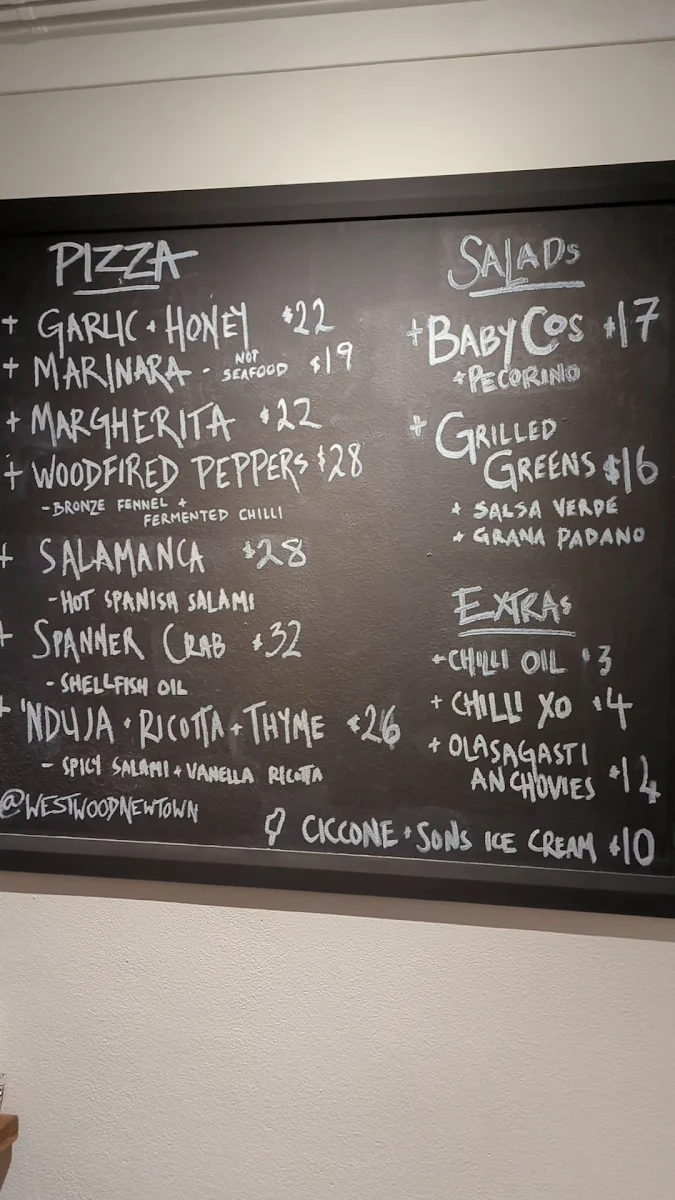 PIZZA
+ GARLIC + HONEY $22
+ MARINARA - NOT SEAFOOD $19
+ MARGHERITA $22
+ WOODFIRED PEPPERS $28
- BRONZE FENNEL +
FERMENTED CHILLI
+ SALAMANCA $28
- HOT SPANISH SALAMI
+ SPANNER CRAB $32
- SHELLFISH OIL
+ 'NDUJA + RICOTTA + THYME $26
- SPICY SALAMI + VANELLA RICOTTA
@WESTWOODNEWTOWN
SALADS
+ BABY COS $17
+ PECORINO
+ GRILLED
GREENS $16
+ SALSA VERDE
+ GRANA PADANO
EXTRAS
+ CHILLI OIL $3
+ CHILLI XO $4
+ OLASAGASTI
ANCHOVIES $14
CICCONE + SONS ICE CREAM $10